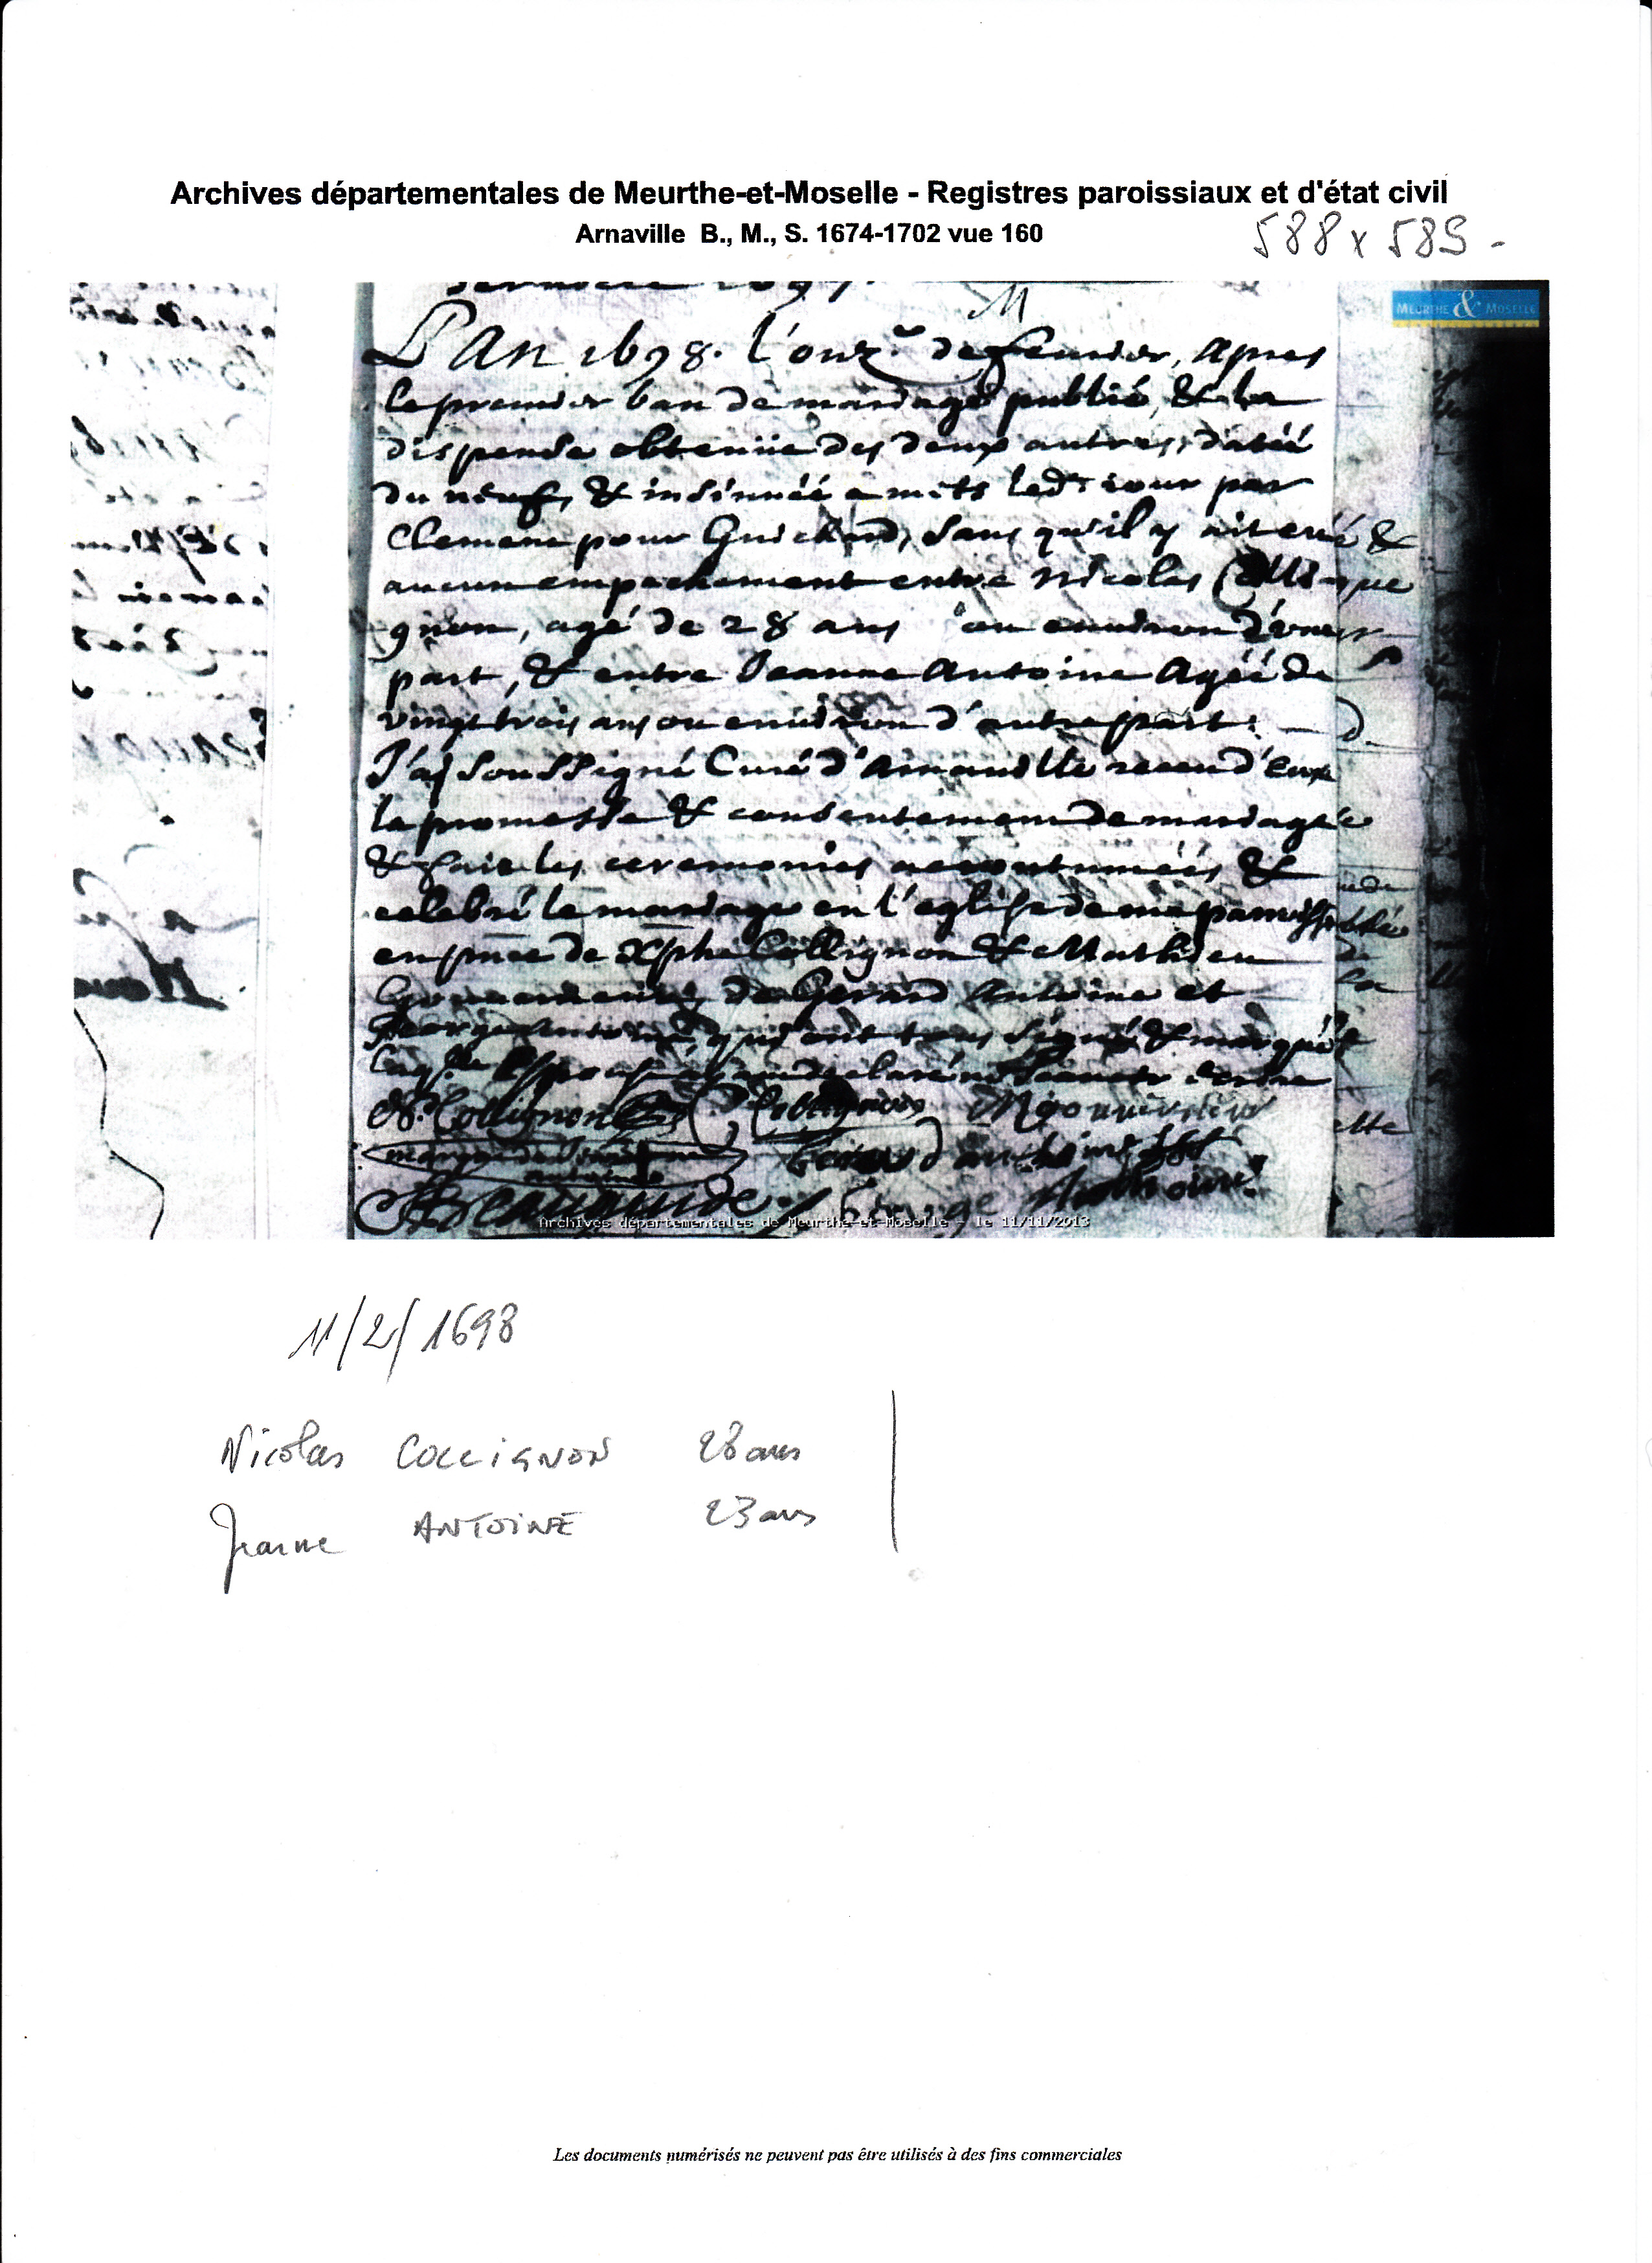 Archives départementales de Meurthe-et-Moselle - Registres paroissiaux et d'état civil
Arnaville B., M., S. 1674-1702 vue 160
588 x 589 -
MEURTHE & MOSELLE
M
L'An 1698. l'onz.e de feurier, apres
le premier ban de mariage publié, & la
dispense obtenüe des deux autres, datéé
du neuf, & insinuéé a mets led.t iour par
Clement pour Guichard, sans qu'il y ait eu
aucun empechement entre Nicolas Colli
gnon, agé de 28 ans ou enuiron d'une
part, & entre Jeanne Antoine Agéé de
vingt trois ans ou enuiron d'autre part:
J'aj soussigné Curé d'Arnauille receu d'eux
la promesse & consentement de mariage
& fait les ceremonies accoutuméés &
celebré le mariage en l'eglise de ma paroisse
en pnce de Xphe Collignon & Mathieu
de Gerard Antoine et
George Antoine, qui ont tous signé & marqué
N. Collignon C. Collignon
marque de
antoine
George Anthoine
Archives départementales de Meurthe-et-Moselle - le 11/11/2013
11/2/1698
Nicolas COLLIGNON 28 ans
Jeanne ANTOINE 23 ans
Les documents numérisés ne peuvent pas être utilisés à des fins commerciales